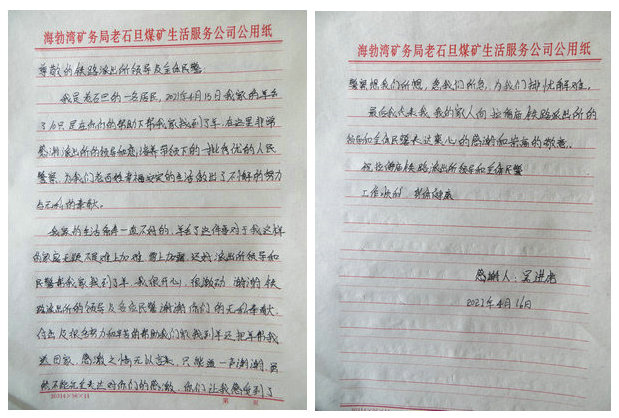 海勃湾矿务局老石旦煤矿生活服务公司公用纸
尊敬的铁路派出所领导及全体民警
我是老石旦的一名居民，2021年4月15日我家的羊丢
了10只是在你们的帮助下帮我家找到了羊，在这里非常
感谢派出所的领导和您培养带领下的一批有优的人民
警察，为我们老百姓幸福安定的生活做出了不懈的努力
与无私的奉献。
我家的生活条件一直不好的，羊丢了这件事对于我这样
的家庭无疑不是难上加难 雪上加霜。还好派出所领导和
民警帮我家找到了羊，我很开心，很激动，谢谢铁
路派出所的领导及各位民警谢谢你们的无私奉献，
付出及很多努力和辛苦的帮助我们家找到羊还把羊帮我
送回家，感激之情无以言表，只能道一声谢谢，虽
然不能完全表达对你们的感激，你们让我感受到了
20314×16×11
第 页
海勃湾矿务局老石旦煤矿生活服务公司公用纸
警察想我们所想，急我们所急，为我们排忧解难。
最后我代表我 我的家人向拉僧庙铁路派出所的
领导和全体民警表达衷心的感谢和崇高的敬意。
祝拉僧庙铁路派出所领导和全体民警
工作顺利 身体健康
感谢人：
2021年4月16日